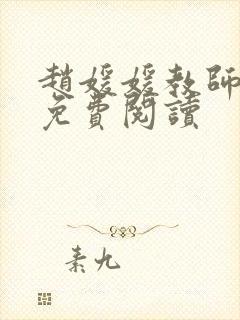 趙媛媛教師
免費閱讀
素九